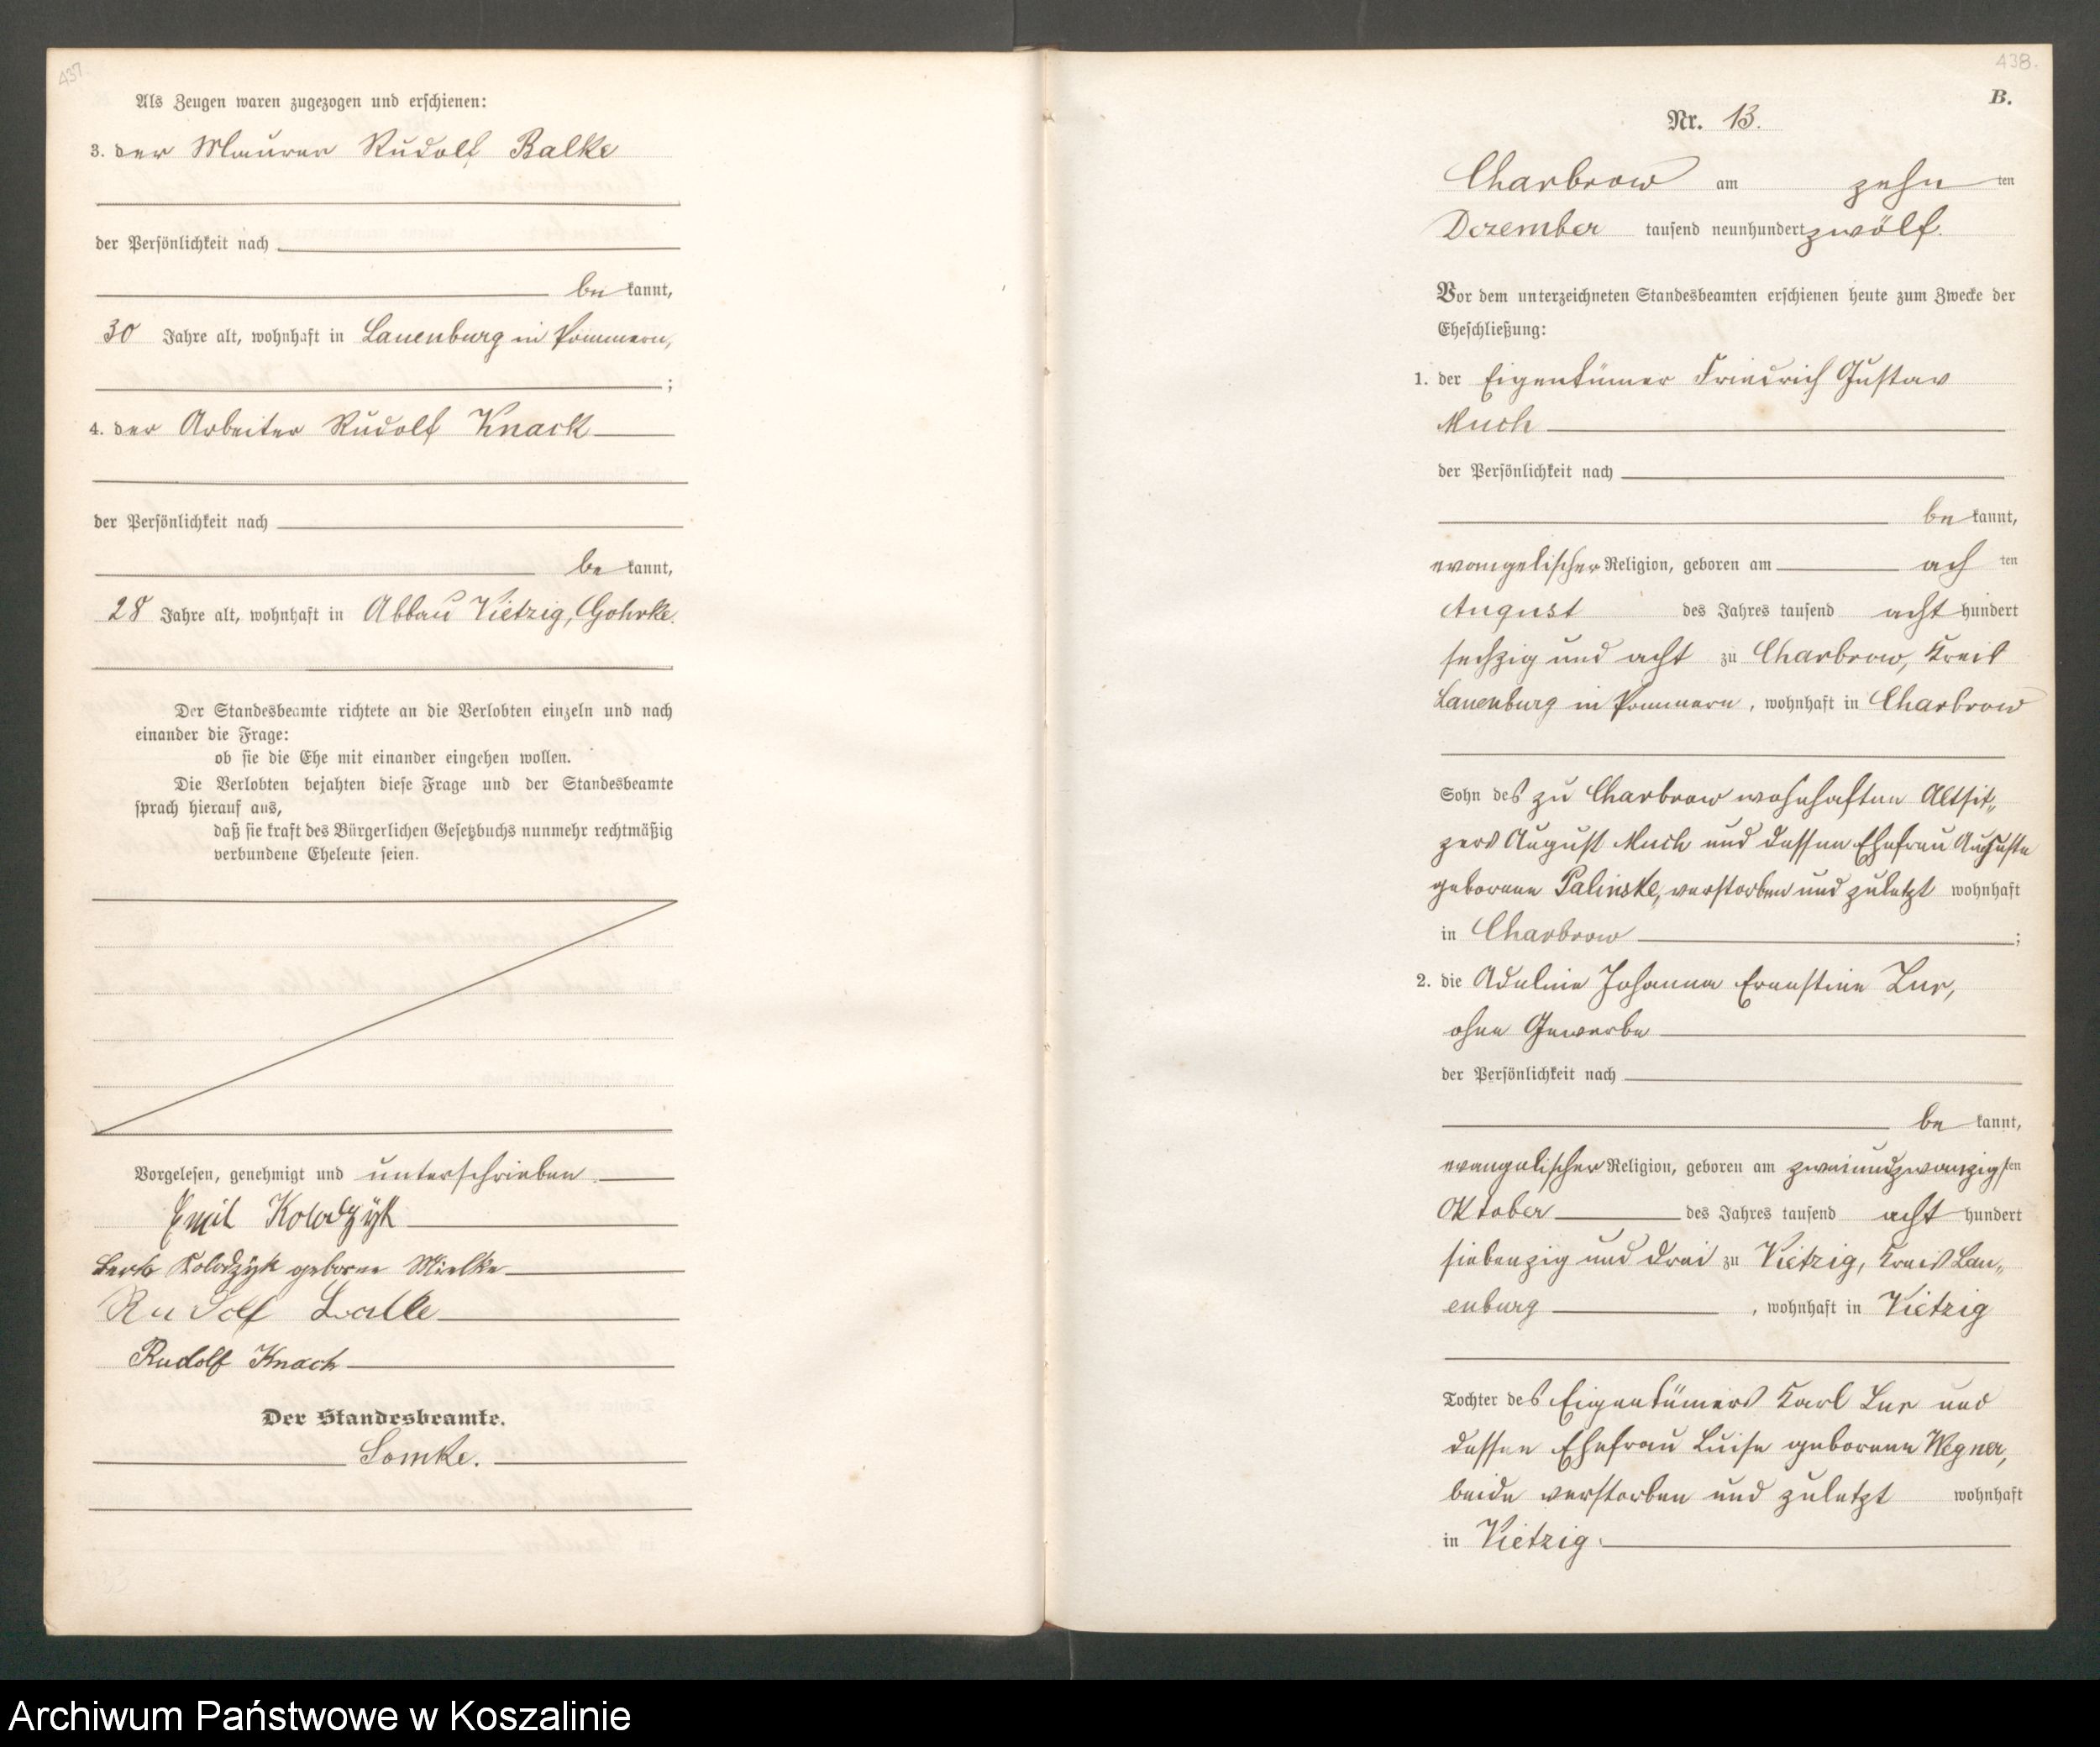 437.
Als Zeugen waren zugezogen und erschienen:
3. der Maurer Rudolf Balke
der Persönlichkeit nach
be kannt,
30 Jahre alt, wohnhaft in Lauenburg in Pommern,
;
4. der Arbeiter Rudolf Knack
der Persönlichkeit nach
be kannt,
28 Jahre alt, wohnhaft in Abbau Vietzig, Gohrke.
Der Standesbeamte richtete an die Verlobten einzeln und nach
einander die Frage:
ob sie die Ehe mit einander eingehen wollen.
Die Verlobten bejahten diese Frage und der Standesbeamte
sprach hierauf aus,
daß sie kraft des Bürgerlichen Gesetzbuchs nunmehr rechtmäßig
verbundene Eheleute seien.
Vorgelesen, genehmigt und unterschrieben.
Emil Kolodzyk
Kolodzyk geborne Mielke
Rudolf
Rudolf Knach
Der Standesbeamte.
Somke.
438.
B.
Nr. 13.
Charbrow am zehn ten
Dezember tausend neunhundert zwölf.
Vor dem unterzeichneten Standesbeamten erschienen heute zum Zwecke der
Eheschließung:
1. der Eigentümer Friedrich Gustav
Much
der Persönlichkeit nach
be kannt,
evangelischer Religion, geboren am ach ten
August des Jahres tausend acht hundert
sechzig und acht zu Charbrow, Kreis
Lauenburg in Pommern, wohnhaft in Charbrow
Sohn des zu Charbrow wohnhaften Altsit„
zers August Much und dessen Ehefrau Auguste
geborene Palinske, verstorben und zuletzt wohnhaft
in Charbrow ;
2. die Adeline Johanna Ernestine Lur,
ohne Gewerbe
der Persönlichkeit nach
be kannt,
evangelischer Religion, geboren am zweiundzwanzigsten
Oktober des Jahres tausend acht hundert
siebenzig und drei zu Vietzig, Kreis Lau„
enburg , wohnhaft in Vietzig
Tochter des Eigentümers Karl Lur und
dessen Ehefrau Luise geborene Wegner,
beide verstorben und zuletzt wohnhaft
in Vietzig.
Archiwum Państwowe w Koszalinie